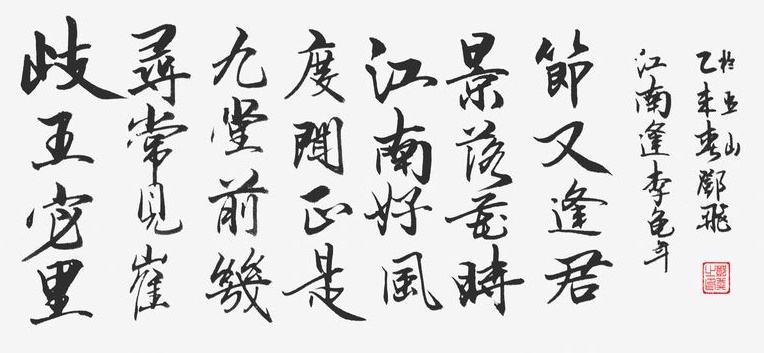 岐王宅里
尋常見崔
九堂前幾
度聞正是
江南好風
景落花時
節又逢君
江南逢李龟年
乙未春鄧飛
於巫山